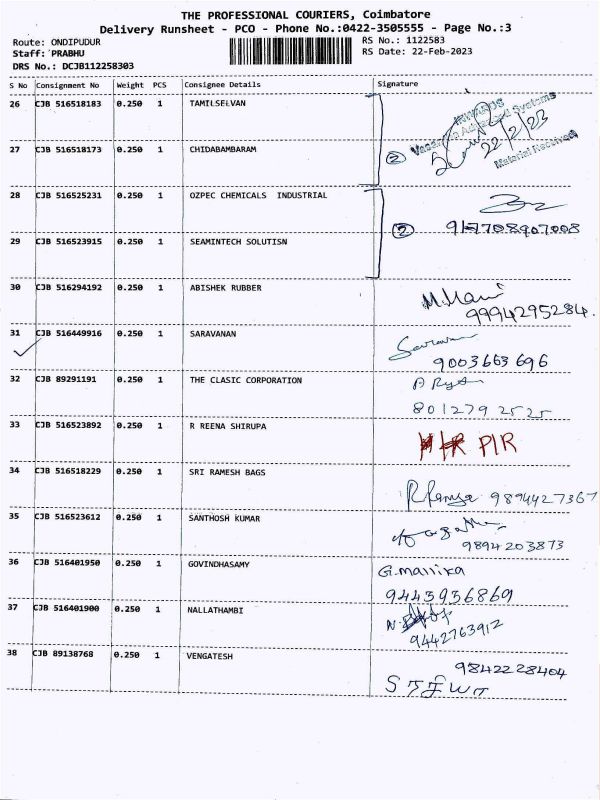 THE PROFESSIONAL COURIERS, Coimbatore
Delivery Runsheet - PCO - Phone No.:0422-3505555 - Page No.:3
Route: ONDIPUDUR RS No.: 1122583
Staff: PRABHU RS Date: 22-Feb-2023
DRS No.: DCJB112258303
S No Consignment No Weight PCS Consignee Details Signature
26 CJB 516518183 0.250 1 TAMILSELVAN
22/2/23
Material Received
27 CJB 516518173 0.250 1 CHIDABAMBARAM 2
28 CJB 516525231 0.250 1 OZPEC CHEMICALS INDUSTRIAL
2
29 CJB 516523915 0.250 1 SEAMINTECH SOLUTISN
30 CJB 516294192 0.250 1 ABISHEK RUBBER M.Mani
9994295284.
31 CJB 516449916 0.250 1 SARAVANAN
9003663696
32 CJB 89291191 0.250 1 THE CLASIC CORPORATION
8012792525
33 CJB 516523892 0.250 1 R REENA SHIRUPA
P/R
34 CJB 516518229 0.250 1 SRI RAMESH BAGS
9894427367
35 CJB 516523612 0.250 1 SANTHOSH KUMAR
9894203873
36 CJB 516401950 0.250 1 GOVINDHASAMY G.mallika
9443936869
37 CJB 516401900 0.250 1 NALLATHAMBI
9442763912
38 CJB 89138768 0.250 1 VENGATESH 9842228404